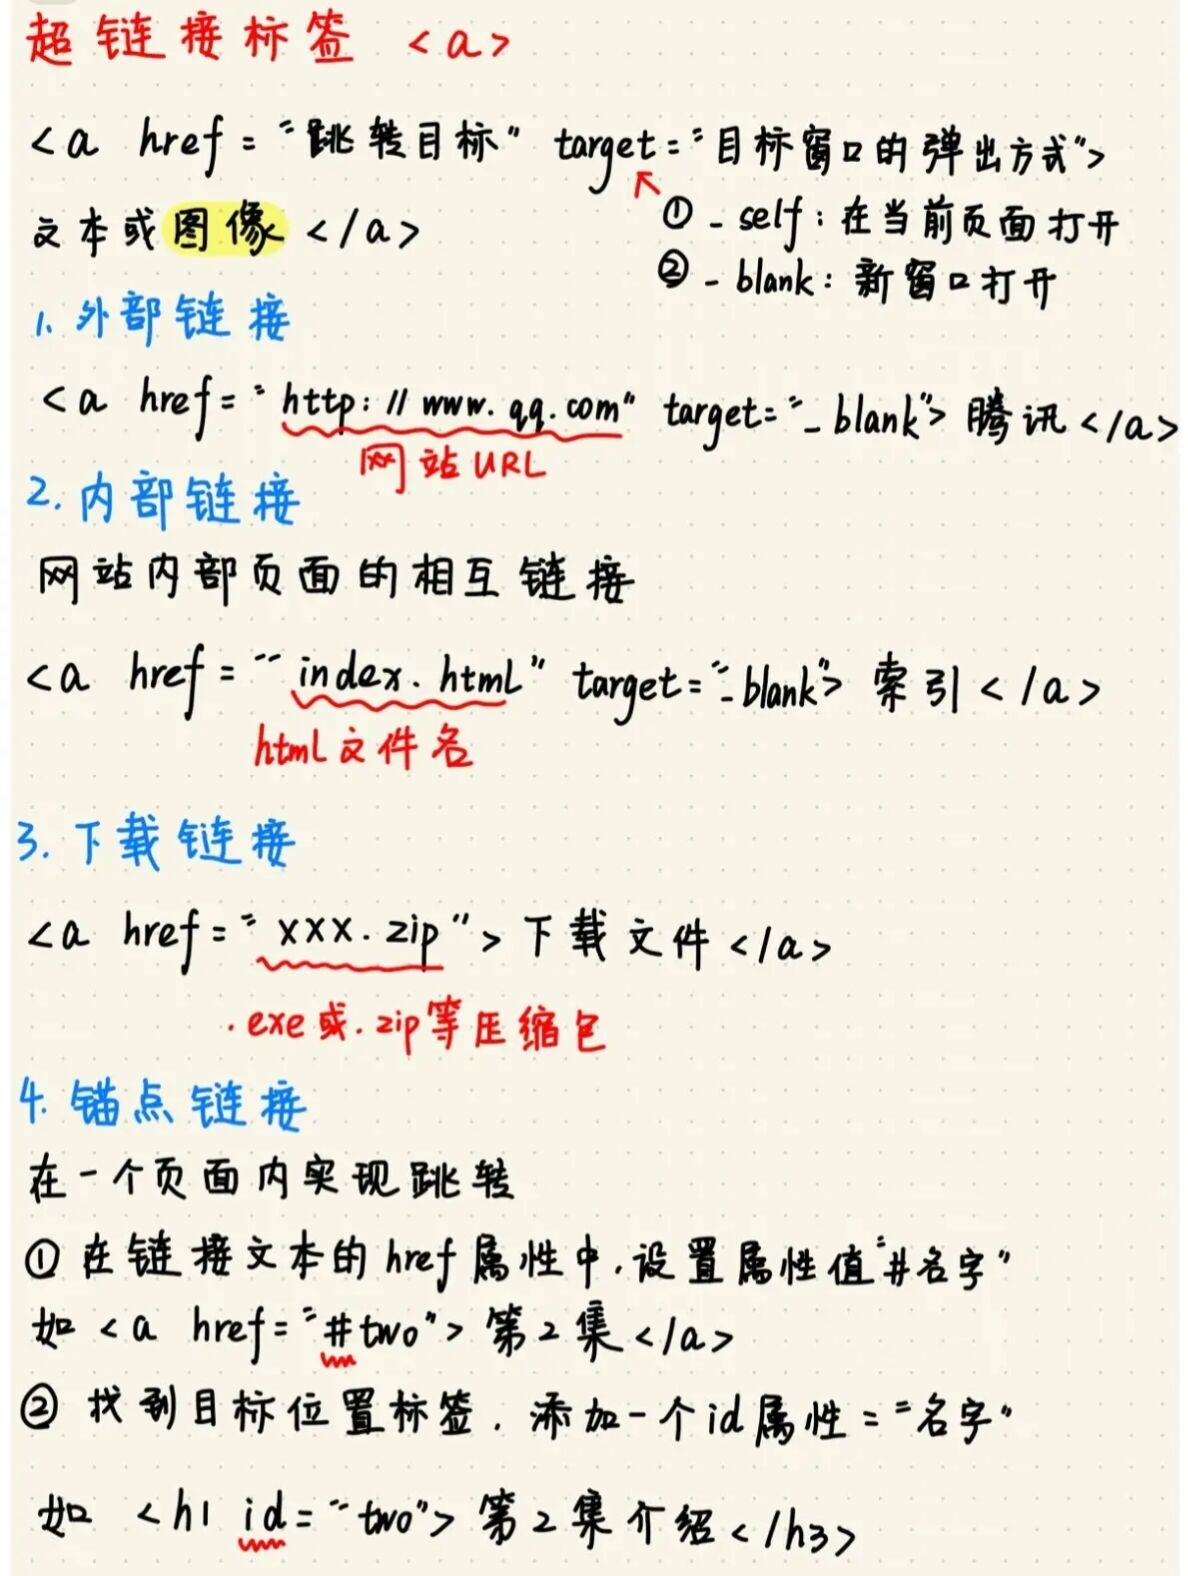 超链接标签 <a>
<a href="跳转目标" target="目标窗口的弹出方式">
文本或图像</a>
① _self:在当前页面打开
② _blank:新窗口打开
1.外部链接
<a href="http://www.qq.com" target="_blank">腾讯</a>
网站URL
2.内部链接
网站内部页面的相互链接
<a href="index.html" target="_blank">索引</a>
html文件名
3.下载链接
<a href="xxx.zip">下载文件</a>
.exe或.zip等压缩包
4.锚点链接
在一个页面内实现跳转
①在链接文本的href属性中,设置属性值"#名字"
如<a href="#two">第2集</a>
②找到目标位置标签.添加一个id属性="名字"
如 <h1 id="two">第2集介绍</h3>